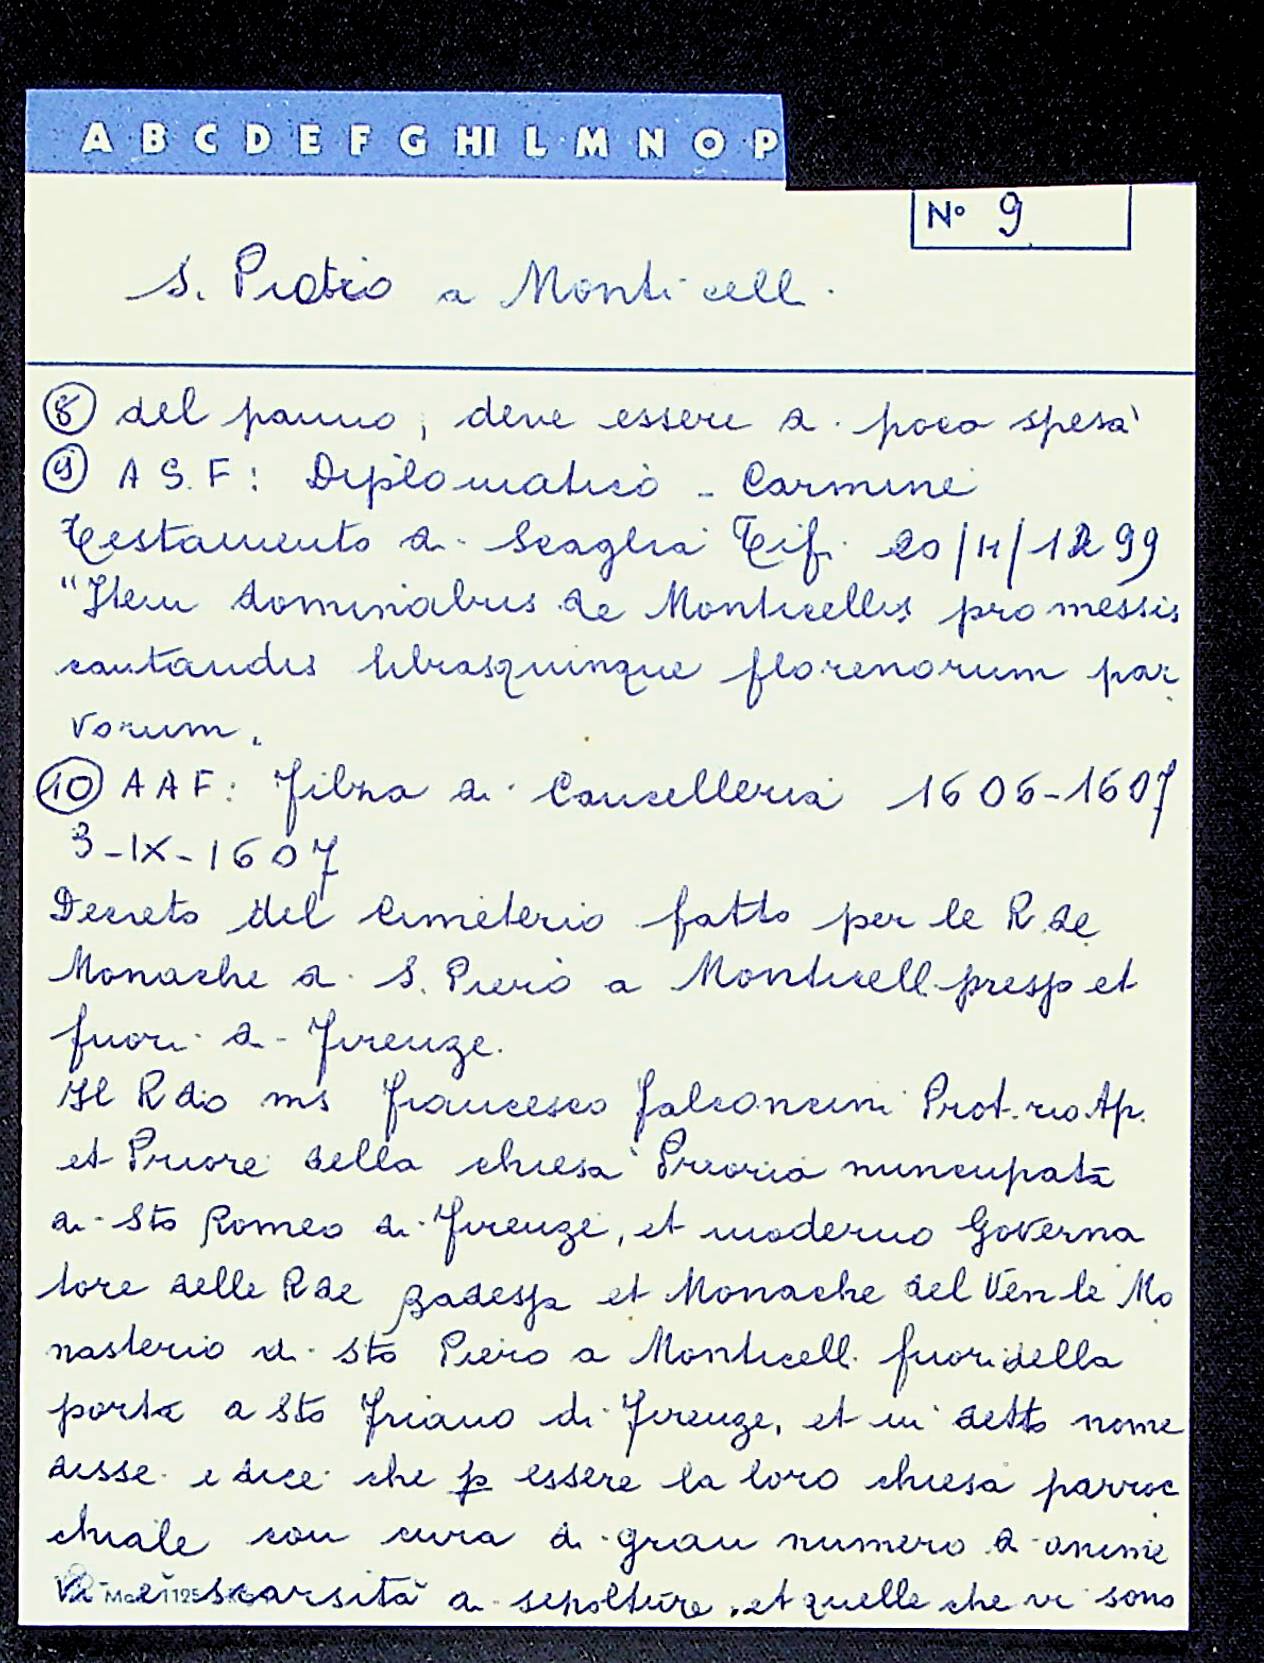 A B C D E F G HI L M N O P
N° 9
S. Pietro a Monticelli.
⑧ del panno, deve essere di poca spesa
⑨ A S.F: Diplomatico - Carmine
Testamento di Scaglia Tifi 20/II/1299
"Item dominabus de Monticellis pro messis
cantandis librasquinque florenorum par
vorum.
⑩ AAF: Filza di Cancelleria 1606-1607
3-IX-1607
Decreto del Cimeterio fatto per le R.de
Monache di S. Piero a Monticelli presso et
fuori di Firenze.
Il R do ms Francesco Falconcini Prot.rio Ap.
et Priore della chiesa Prioria nuncupata
di Sto Romeo di Firenze, et moderno Governa
tore delle R de Badessa et Monache del Ven le Mo
nasterio di Sto Piero a Monticelli fuori della
porta a Sto Friano di Firenze, et in detto nome
disse e dice che p essere la loro chiesa parroc
chiale con cura di gran numero di anime
vi è scarsità di sepolture, et quelle che vi sono